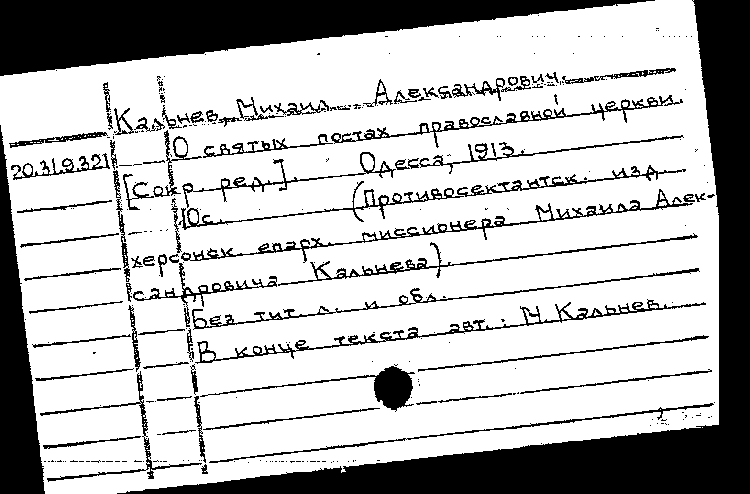 Кальнев, Михаил Александрович.
О святых постах православной церкви.
20.31.9.321
[Сокр. ред.]. Одесса, 1913.
10с. (Противосектантск. изд.
херсонск епарх. миссионера Михаила Алек-
сандровича Кальнева).
Без тит. л. и обл.
В конце текста авт.: М. Кальнев.